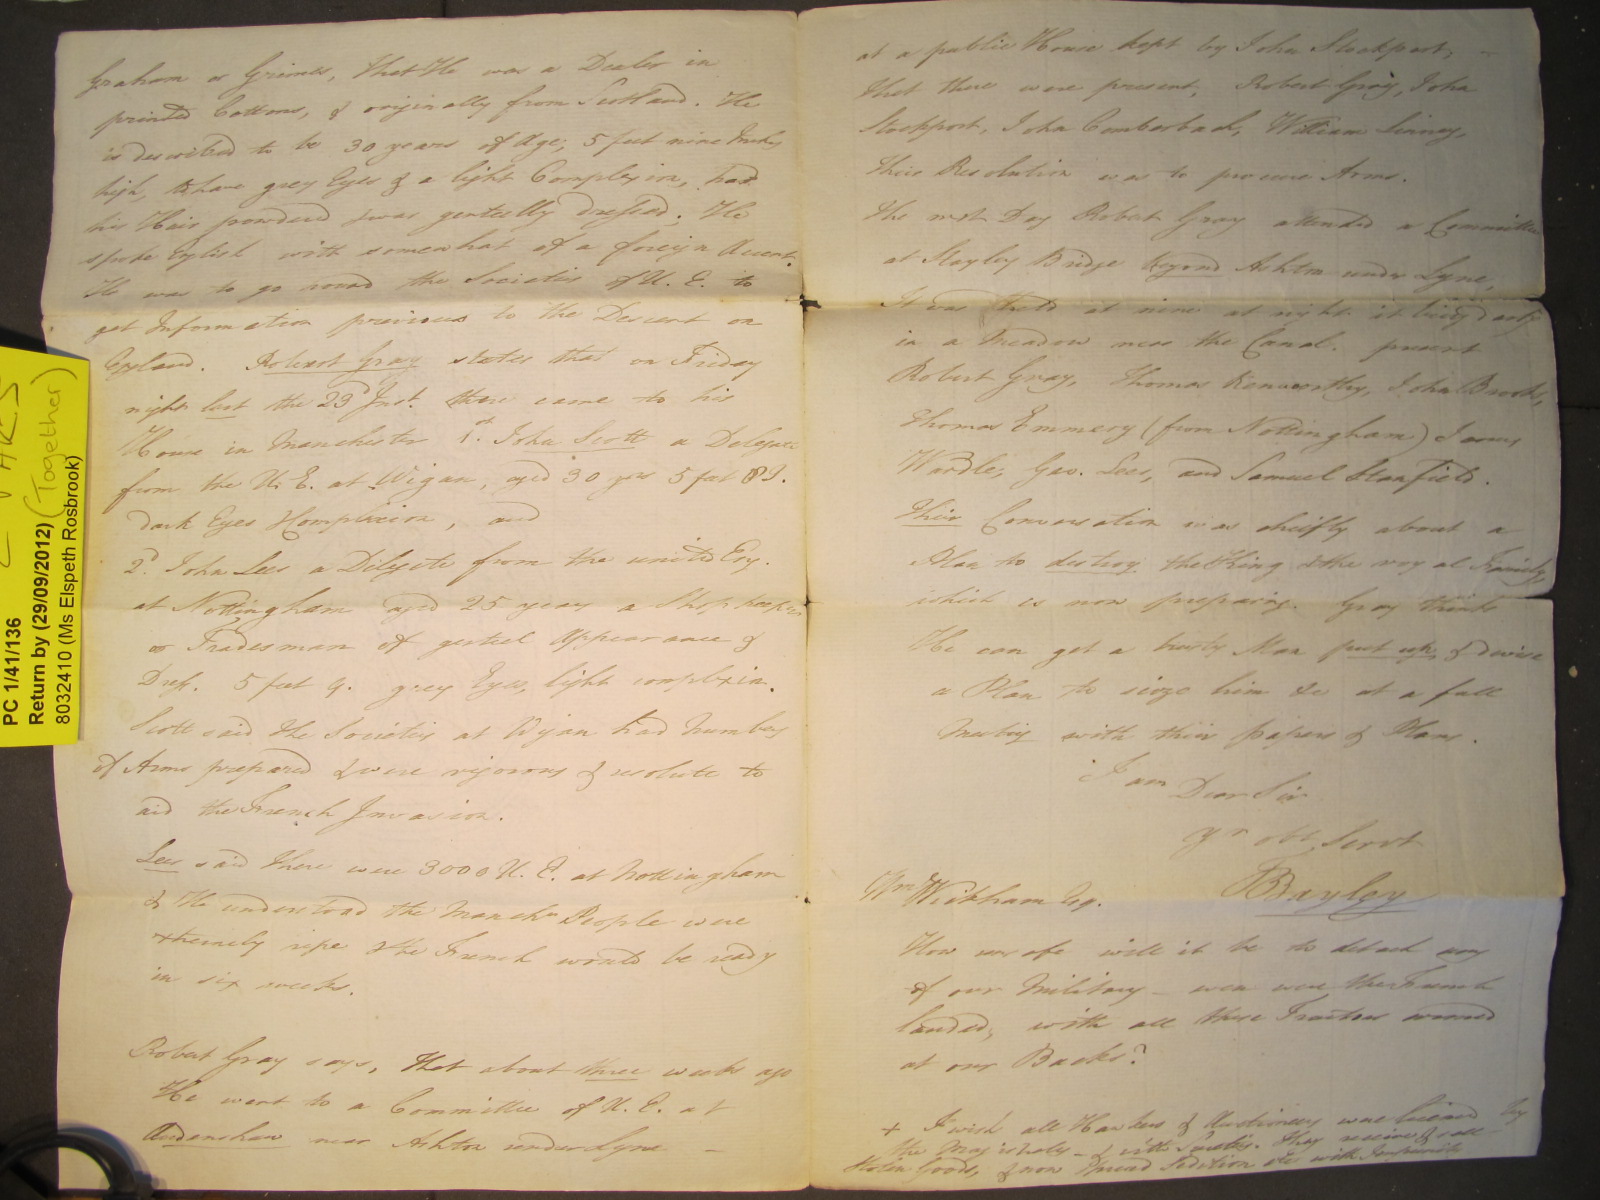 Graham or Grimes, that He was a Dealer in
printed Cottons, & originally from Scotland. He
is described to be 30 years of Age; 5 feet nine Inches
high, to have grey Eyes & a light Complexion, had
his Hair powdered & was genteelly dressed. He
spoke English with somewhat of a foreign Accent.
He was to go round the Societies of U. E. to
get Information previous to the Descent on
England. Robert Gray states that on Friday
night last the 23d Inst. there came to his
House in Manchester 1st. John Scott a Delegate
from the U. E. at Wigan, aged 30 yrs 5 feet 8 I.
dark Eyes & Complexion, and
2d. John Lees a Delegate from the united Eng.
at Nottingham aged 25 years a Shopkeeper
or Tradesman of genteel Appearance &
Dress. 5 feet 9. grey Eyes, light complexion.
Scott said the Societies at Wigan had Numbers
of Arms prepared & were vigorous & resolute to
aid the French Invasion.
Lees said there were 3000 U. E. at Nottingham
& He understood the Manchr People were
extremely ripe & the French would be ready
in six weeks.
Robert Gray says, that about three weeks ago
He went to a Committee of U. E. at
Audenshaw near Ashton under Lyne –
at a public House kept by John Stockport, –
that there were present, Robert Gray, John
Stockport, John Comberbach, William
their Resolution was to procure Arms.
the next Day Robert Gray attended a Committee
at Stayley Bridge beyond Ashton under Lyne,
It was held at nine at night it being dark
in a Meadow near the Canal. present
Robert Gray, Thomas Kenworthy, John Brooks,
Thomas Emmery (from Nottingham) James
Wardle, Geo. Lees, and Samuel Stanfield.
Their Conversation was chiefly about a
Plan to destroy the King & the royal Family,
which is now preparing. Gray thinks
He can get a trusty Man put up, & devise
a Plan to seize him &c at a full
Meeting with their papers & Plans.
I am
Dear Sir
yr obt Servt
Bayley
Wm Wickham Esq.
How unsafe will it be to detach any
of our Military – even were the French
landed, with all these Traitors around
at our Backs?
+ I wish all Hawkers & Auctioneers were licensed by
the Magistrates – & with Sureties. They receive & sell
stolen Goods, & now spread Sedition &c with Impunity
PC 1/41/136
Return by (29/09/2012)
8032410 (Ms Elspeth Rosbrook)
(Together)